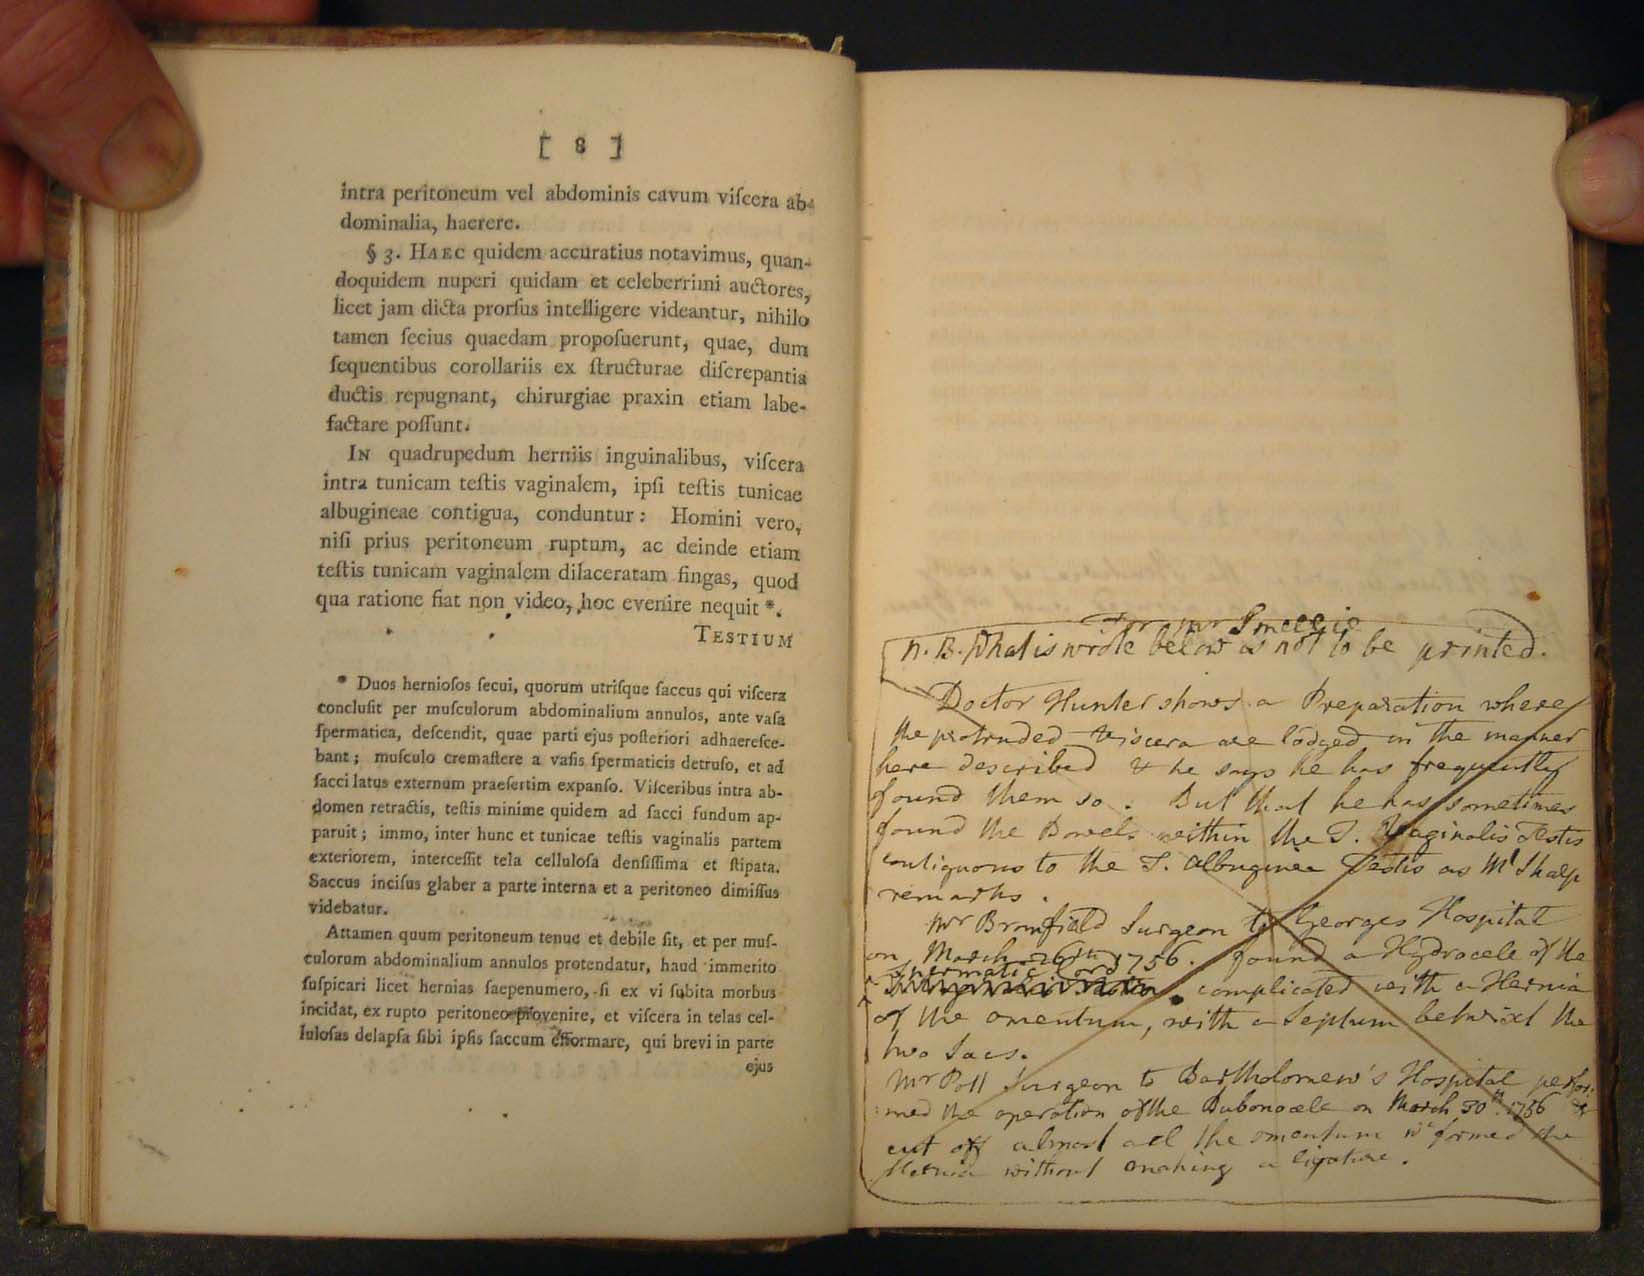 [ 8 ]
intra peritoneum vel abdominis cavum viſcera ab-
dominalia, haerere.
§ 3. HAEC quidem accuratius notavimus, quan-
doquidem nuperi quidam et celeberrimi auctores,
licet jam dicta prorſus intelligere videantur, nihilo
tamen ſecius quaedam propoſuerunt, quae, dum
ſequentibus corollariis ex ſtructurae diſcrepantia
ductis repugnant, chirurgiae praxin etiam labe-
factare poſſunt.
IN quadrupedum herniis inguinalibus, viſcera
intra tunicam teſtis vaginalem, ipſi teſtis tunicae
albugineae contigua, conduntur: Homini vero,
niſi prius peritoneum ruptum, ac deinde etiam
teſtis tunicam vaginalem dilaceratam fingas, quod
qua ratione fiat non video, hoc evenire nequit *.
TESTIUM
* Duos hernioſos ſecui, quorum utriſque ſaccus qui viſcera
concluſit per muſculorum abdominalium annulos, ante vaſa
ſpermatica, deſcendit, quae parti ejus poſteriori adhaereſce-
bant; muſculo cremaſtere a vaſis ſpermaticis detruſo, et ad
ſacci latus externum praeſertim expanſo. Viſceribus intra ab-
domen retractis, teſtis minime quidem ad ſacci fundum ap-
paruit; immo, inter hunc et tunicae teſtis vaginalis partem
exteriorem, interceſſit tela celluloſa denſiſſima et ſtipata.
Saccus inciſus glaber a parte interna et a peritoneo dimiſſus
videbatur.
Attamen quum peritoneum tenue et debile ſit, et per muſ-
culorum abdominalium annulos protendatur, haud immerito
ſuſpicari licet hernias ſaepenumero, ſi ex vi ſubita morbus
incidat, ex rupto peritoneo provenire, et viſcera in telas cel-
luloſas delapſa ſibi ipſis ſaccum efformare, qui brevi in parte
ejus
For Mr Smellie
N. B. What is wrote below is not to be printed.
Doctor Hunter shows a Preparation where
the protruded Viscera are lodged in the manner
here described & he says he has frequently
found them so. But that he has sometimes
found the Bowels within the T. Vaginalis Testis
contiguous to the T. Albuginea Testis as Mr Sharp
remarks.
Mr Bromfield Surgeon to Georges Hospital
on March 26th 1756. found a Hydrocele of the
Spermatic Cord
complicated with a Hernia
of the omentum, with a Septum betwixt the
two Sacs.
Mr Pott Surgeon to Bartholomew's Hospital perfor:
:med the operation of the Bubonocele on March 30th. 1756 &
cut off almost all the omentum wc formed the
Hernia without making a ligature.